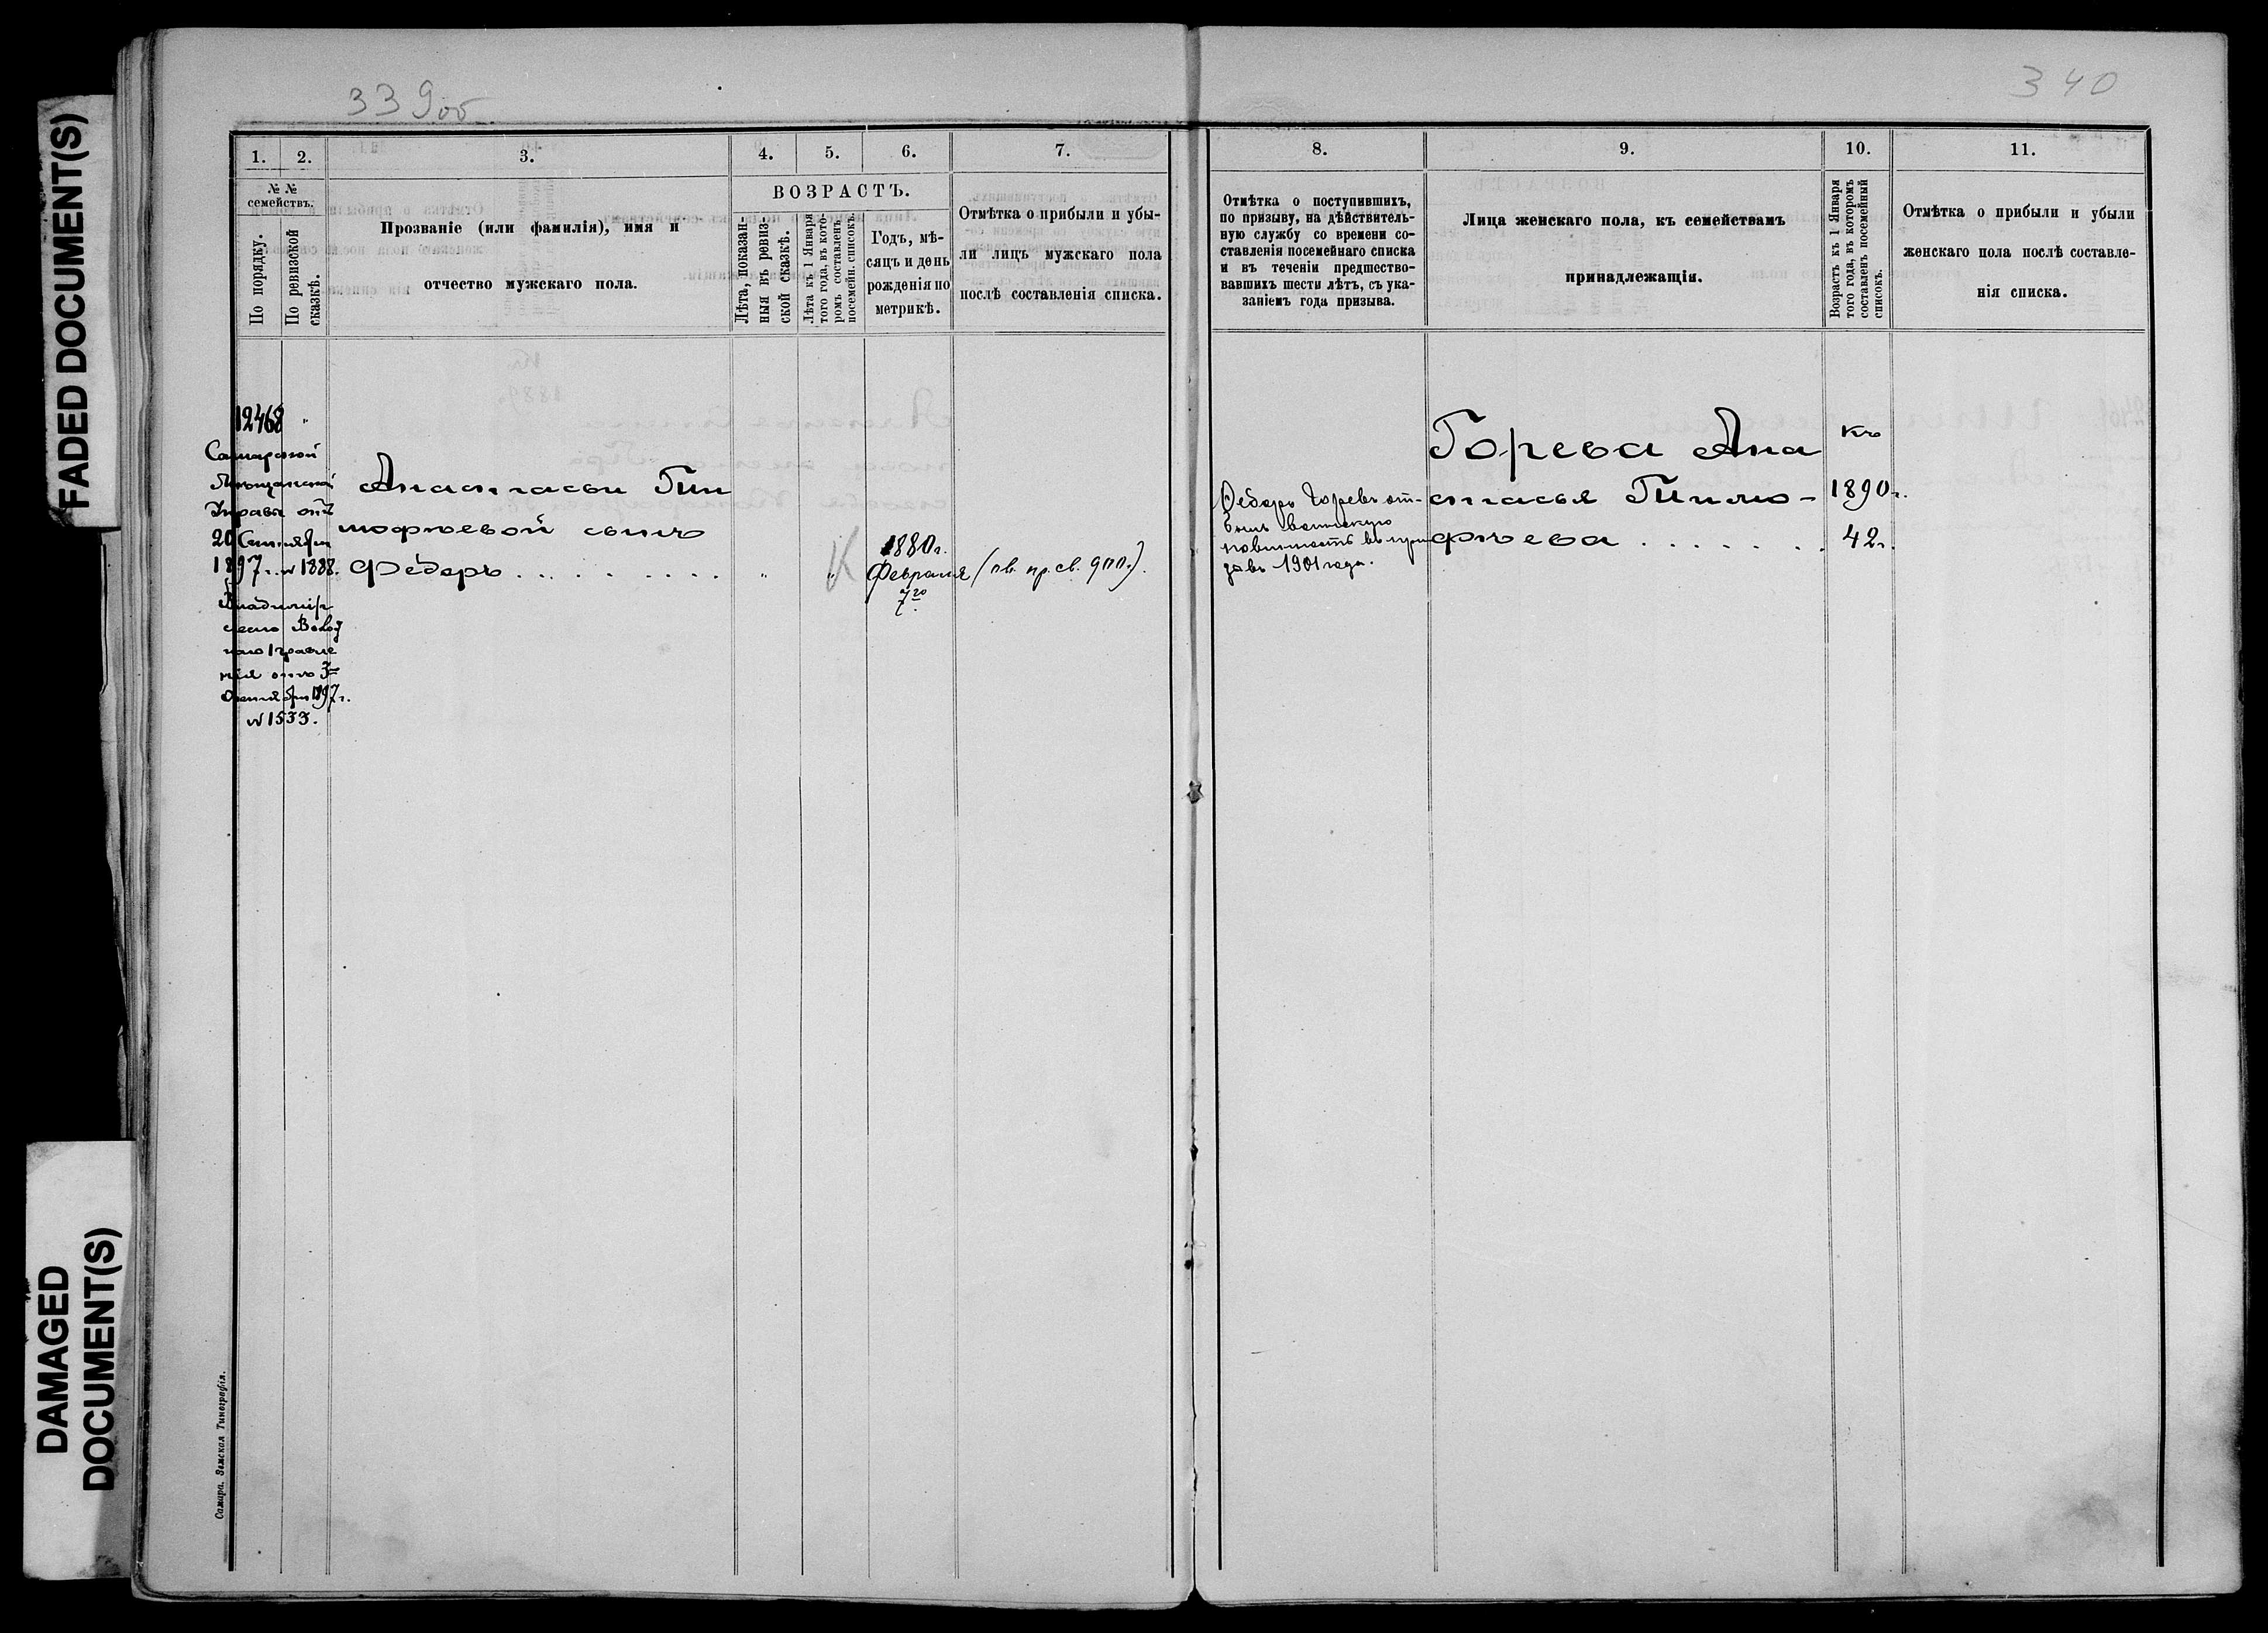 FADED DOCUMENT(S)
DAMAGED
DOCUMENT(S)
339об
340
1.
2.
3.
4.
5.
6.
7.
№ №
семействъ.
По порядку.
По ревизской
сказкѣ.
Прозваніе (или фамилія), имя и
отчество мужскаго пола.
ВОЗРАСТЪ.
Лѣта, показан-
ныя въ ревиз-
ской сказкѣ.
Лѣта къ 1 Января
того года, въ кото-
ромъ составленъ
посемейн. списокъ.
Годъ, мѣ-
сяцъ и день
рожденія по
метрикѣ.
Отмѣтка о прибыли и убы-
ли лицъ мужскаго пола
послѣ составленія списка.
12468 "
Самарской
Мѣщанской
Управы отъ
20 Сентября
1897 г. № 1888.
Владимір
скаго Волост
наго Правле
нія отъ 3го
Сентября 1897 г.
№ 1533.
Анастасьи Тим
мофѣевой сынъ
Ѳедоръ . . . . . . . . .
"
"
К
1880 г.
Февраля
7го
(ов. пр. св. 900.).
8.
9.
10.
11.
Отмѣтка о поступившихъ,
по призыву, на дѣйствитель-
ную службу со времени со-
ставленія посемейнаго списка
и въ теченіи предшество-
вавшихъ шести лѣтъ, съ ука-
заніемъ года призыва.
Лица женскаго пола, къ семействамъ
принадлежащія.
Возрастъ къ 1 Января
того года, въ которомъ
составленъ посемейный
списокъ.
Отмѣтка о прибыли и убыли
женскаго пола послѣ составле-
нія списка.
Ѳедоръ Горевъ от-
былъ воинскую
повинность въ при
зывъ 1901 года.
Горева Ана
стасья Тимо-
фѣева . . . . . . .
къ
1890 г.
42 г.
Самара. Земская Типографія.